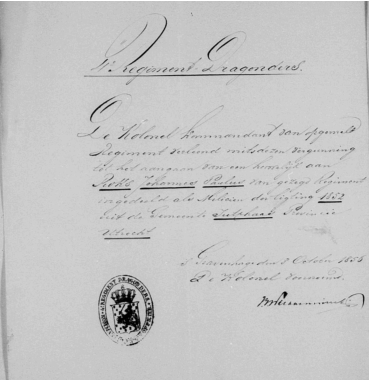 4e Regiment Dragonders.
De Kolonel Kommandant van opgemeld
Regiment verleend mits dezen vergunning
tot het aangaan van een huwelijk aan
Johannes Paulus van gezegd Regiment
ingedeeld als Milicien der ligting 1852
uit de Gemeente Provincie
Utrecht
's Gravenhage den 8 October 1856
De Kolonel voornoemd.